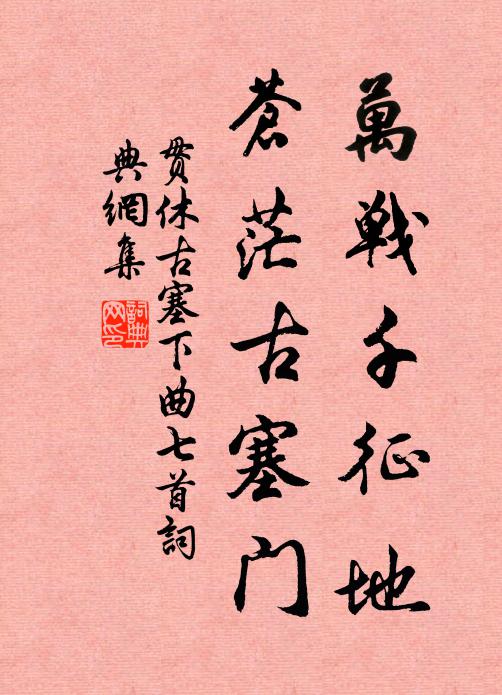 萬戰千征地
蒼茫古塞門
贯休古塞下曲七首詞
典網集
詞典
网印